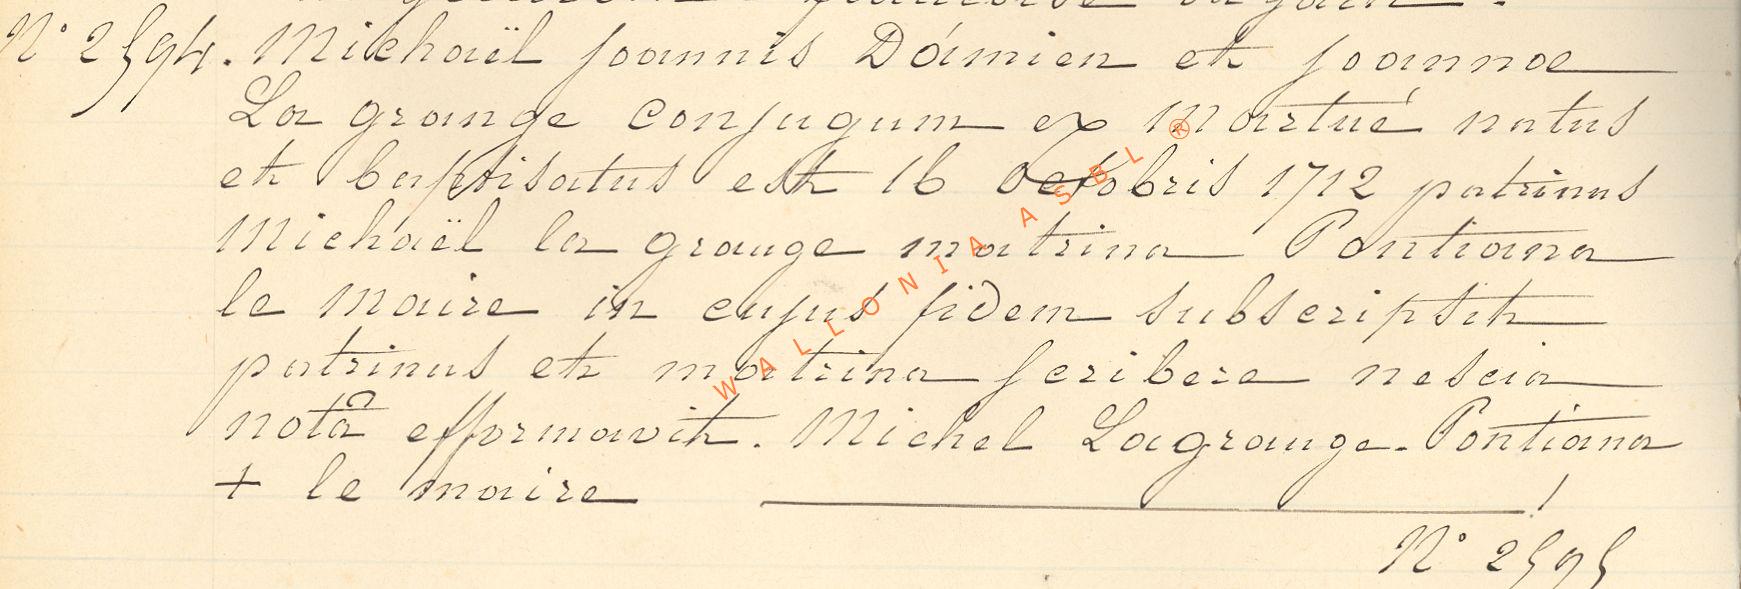 N° 2594. Michaël Joannis Dámien et Joannae
La grange conjugum ex Martué natus
et baptisatus est 16 octobris 1712 patrinus
Michaël la grange matrina Pontiana
le maire in cujus fidem subscripsit
patrinus et matrina scribere nescia
nota efformavit. Michel Lagrange. Pontiana
+ le maire !
N° 2595
WALLONIA ASBL ®